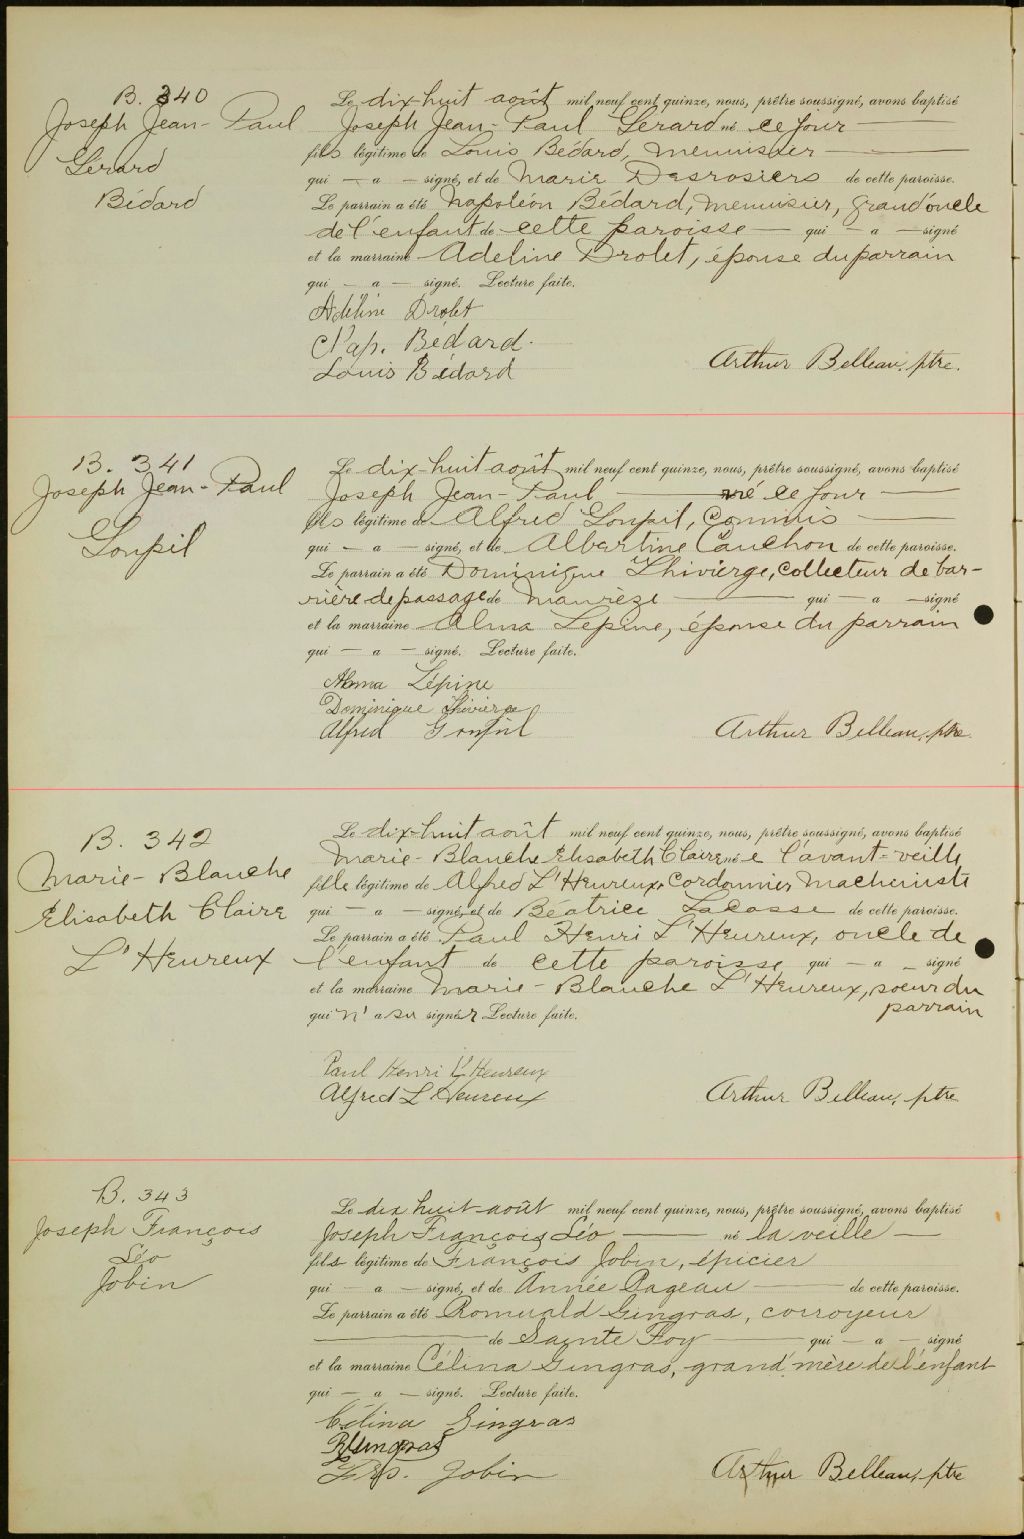 B. 340
Joseph Jean-Paul
Gérard
Bédard
Le dix-huit août mil neuf cent quinze, nous, prêtre soussigné, avons baptisé
Joseph Jean-Paul Gérard né ce jour
fils légitime de Louis Bédard, menuisier
qui — a — signé, et de Marie Desrosiers de cette paroisse.
Le parrain a été Napoléon Bédard, menuisier, grand'oncle
de l'enfant de cette paroisse — qui — a — signé
et la marraine Adeline Drolet, épouse du parrain
qui — a — signé. Lecture faite.
Adéline Drolet
Nap. Bédard.
Louis Bédard
Arthur Belleau, ptre.
B. 341
Joseph Jean-Paul
Goupil
Le dix-huit août mil neuf cent quinze, nous, prêtre soussigné, avons baptisé
Joseph Jean-Paul — né ce jour —
fils légitime de Alfred Goupil, Commis
qui — a — signé, et de Albertine Cauchon de cette paroisse.
Le parrain a été Dominique Thivierge, collecteur de bar-
rière de passage de — qui — a — signé
et la marraine Alma Lepine, épouse du parrain
qui — a — signé. Lecture faite.
Alma Lépine
Dominique Thivierge
Alfred Goupil
Arthur Belleau, ptre.
B. 342
Marie-Blanche
Elisabeth Claire
L'Heureux
Le dix-huit août mil neuf cent quinze, nous, prêtre soussigné, avons baptisé
Marie-Blanche Elisabeth Claire née l'avant-veille
fille légitime de Alfred L'Heureux, Cordonnier Machiniste
qui — a — signé, et de Béatrice Lacasse de cette paroisse.
Le parrain a été Paul Henri L'Heureux, oncle de
l'enfant de cette paroisse qui — a — signé
et la marraine Marie-Blanche L'Heureux, soeur du
parrain
qui n'a su signer Lecture faite.
Paul Henri L'Heureux
Alfred L'Heureux
Arthur Belleau, ptre
B. 343
Joseph François
Léo
Jobin
Le dix huit août mil neuf cent quinze, nous, prêtre soussigné, avons baptisé
Joseph François Léo — né la veille —
fils légitime de François Jobin, épicier
qui — a — signé, et de Année Pageau — de cette paroisse.
Le parrain a été Romuald Gingras, corroyeur
— de Sainte Foy — qui — a — signé
et la marraine Célina Gingras, grand'mère de l'enfant
qui — a — signé. Lecture faite.
Célina Gingras
R Gingras
Frs. Jobin
Arthur Belleau, ptre